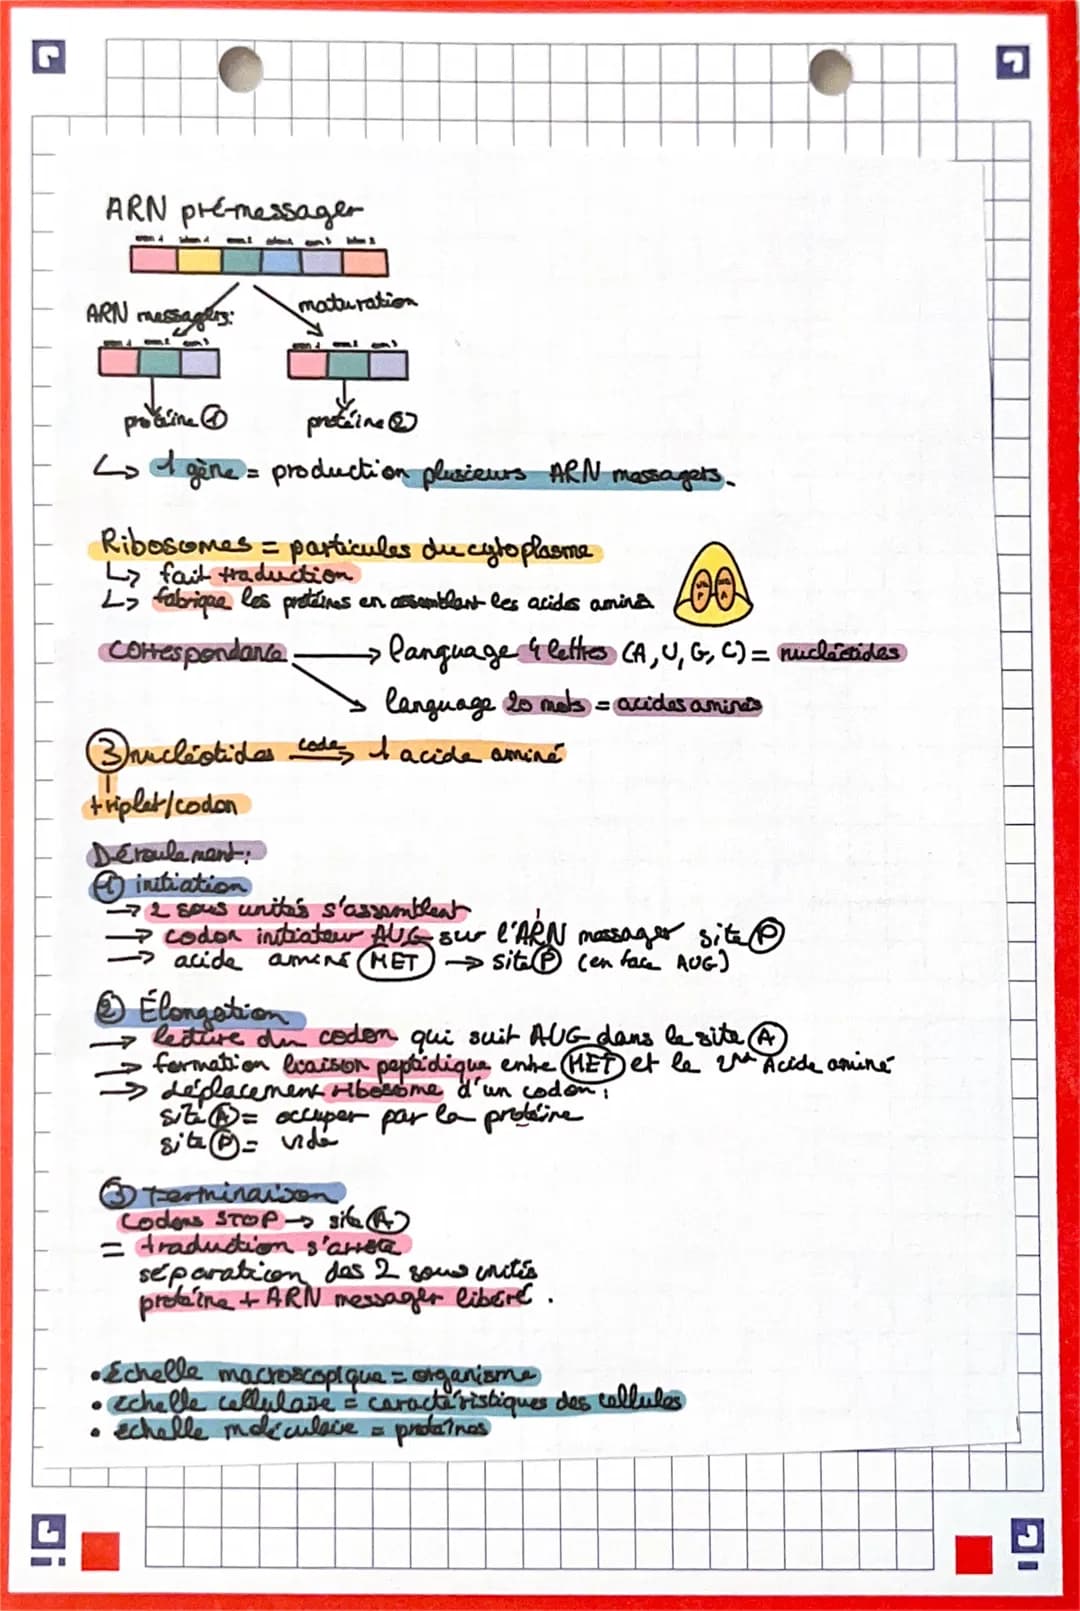 ARN pré-messager
exon 1 intron 1 exon 2 exon 3
ARN messagers:
maturation
exon 1 exon 2 exon 3
exon 1 exon 2 exon 3
protéine ①
protéine ②
↳ 1 gène = production plusieurs ARN messagers.
Ribosomes = particules du cytoplasme
↳ fait traduction
↳ fabrique les protéines en assemblant les acides aminés
P A
correspondance → language 4 lettres (A, U, G, C) = nucléotides
→ language 20 mots = acides aminés
③ nucléotides code→ 1 acide aminé
triplet/codon
Déroulement:
① initiation
→ 2 sous unités s'assemblent
→ codon initiateur AUG sur l'ARN messager site Ⓟ
→ acide aminé MET → site Ⓟ (en face AUG)
② Élongation
→ lecture du codon qui suit AUG dans le site Ⓐ
→ formation liaison peptidique entre MET et le 2nd Acide aminé
→ déplacement ribosome d'un codon:
site Ⓐ = occuper par la protéine
site Ⓟ = vide
③ terminaison
Codons STOP → site Ⓐ
= traduction s'arrête
séparation des 2 sous unités
protéine + ARN messager libéré.
• Échelle macroscopique = organisme
• échelle cellulaire = caractéristiques des cellules
• échelle moléculaire = protéines